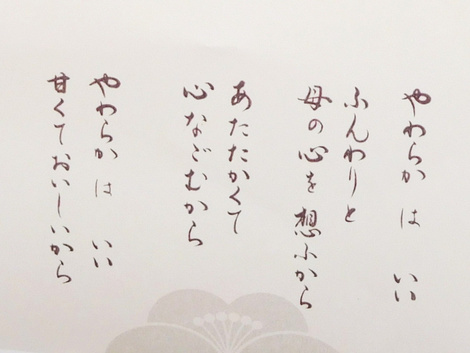 やわらか は いい
ふんわりと
母の心を 想ふから
あたたかくて
心なごむから
やわらか は いい
甘くておいしいから